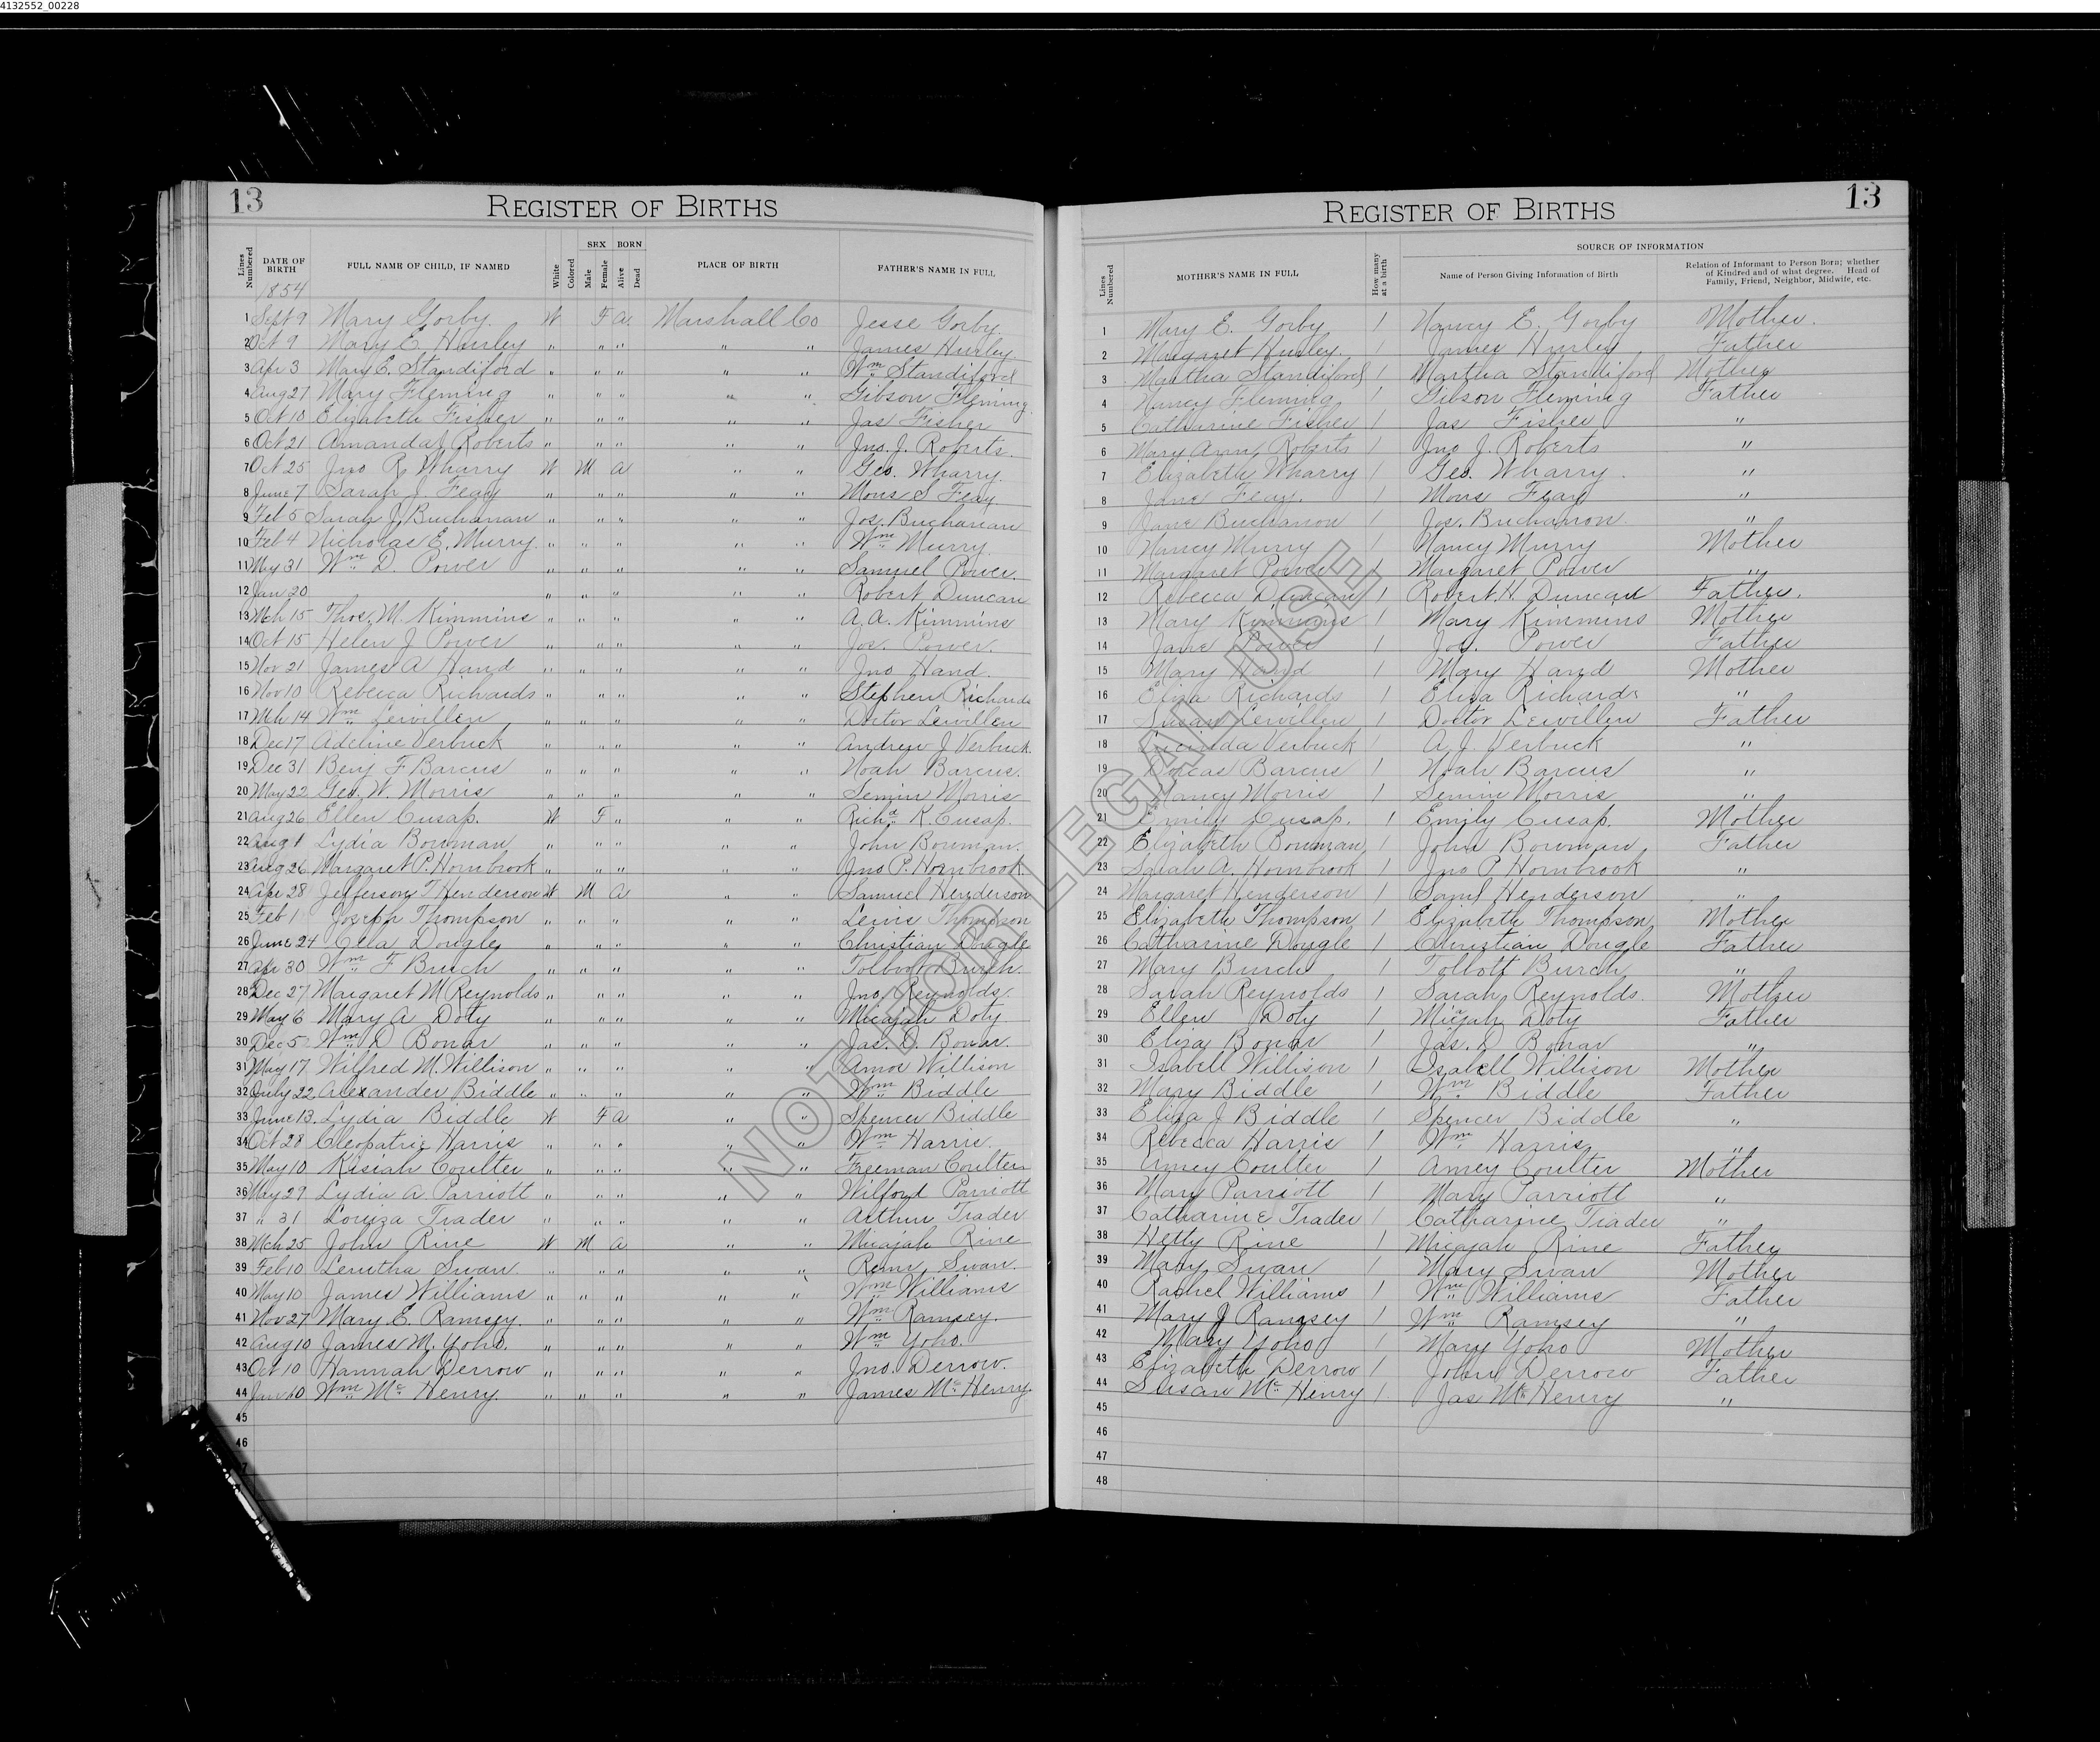 4132552_00228
13 REGISTER OF BIRTHS
Lines Numbered DATE OF BIRTH FULL NAME OF CHILD, IF NAMED White Colored SEX Male Female BORN Alive Dead PLACE OF BIRTH FATHER'S NAME IN FULL
1854
1 Sept 9 Mary Gorby. W F A. Marshall Co Jesse Gorby.
2 Oct 9 Mary E. Hurley " " " " " James Hurley
3 Apr 3 Mary E. Standiford " " " " " Wm Standiford
4 Aug 27 Mary Fleming " " " " " Gibson Fleming
5 Oct 10 Elizabeth Fisher " " " " " Jas Fisher
6 Oct 21 Amanda J Roberts " " " " " Jno. J. Roberts.
7 Oct 25 Jno R. Wharry W M A " " Geo. Wharry.
8 June 7 Sarah J. Feay " " " " " Mons S Feay.
9 Feb 5 Sarah J. Buchanan " " " " " Jos. Buchanan
10 Feb 4 Nicholas E. Murry. " " " " " Wm Murry.
11 May 31 Wm D. Power " " " " " Samuel Power.
12 Jan 20 " " " " " Robert Duncan
13 Mch 15 Thos. M. Kimmins " " " " " A. A. Kimmins
14 Oct 15 Helen J Power " " " " " Jos. Power.
15 Nov 21 James A Hand " " " " " Jno Hand.
16 Nov 10 Rebecca Richards " " " " " Stephen Richards
17 Mch 14 Wm Lewillen " " " " " Doctor Lewillen
18 Dec 17 Adeline Verbuck " " " " " Andrew J Verbuck.
19 Dec 31 Benj F Barcus " " " " " Noah Barcus.
20 May 22 Geo. W. Morris " " " " " Morris
21 Aug 26 Ellen Cusap. W F " " " Richd K. Cusap.
22 Aug 1 Lydia Bowman " " " " " John Bowman.
23 Aug 26 Margaret P. Hornbrook " " " " " Jno P. Hornbrook.
24 Apr 28 Jefferson T Henderson W M A " " Samuel Henderson
25 Feb 1 Joseph Thompson " " " " " Lewis Thompson
26 June 24 Cela Dougle " " " " " Christian Dougle
27 Apr 30 Wm F Burch " " " " " Tolbott Burch.
28 Dec 27 Margaret M Reynolds " " " " " Jno. Reynolds.
29 May 6 Mary A Doty " " " " " Micajah Doty
30 Dec 5 Wm D Bonar " " " " " Jas. D. Bonar.
31 May 17 Wilfred M. Willison " " " " " Amos Willison
32 July 22 Alexander Biddle " " " " " Wm Biddle
33 June 13. Lydia Biddle W F A " " Spencer Biddle
34 Oct 28 Cleopatric Harris " " " " " Wm Harris.
35 May 10 Kisiah Coulter " " " " " Freeman Coulter
36 May 29 Lydia A. Parriott " " " " " Wilford Parriott
37 " 31 Louiza Trader " " " " " Arthur Trader
38 Mch 25 John Rine W M A " " Micajah Rine
39 Feb 10 Swan. " " " " " Swan.
40 May 10 James Williams " " " " " Wm Williams
41 Nov 27 Mary E. Ramsey. " " " " " Wm Ramsey.
42 Aug 10 James M. Yoho. " " " " " Wm Yoho.
43 Oct 10 Hannah Derrow " " " " " Jno. Derrow.
44 Jan 10 Wm Mc Henry. " " " " " James Mc Henry.
45
46
REGISTER OF BIRTHS 13
Lines Numbered MOTHER'S NAME IN FULL How many at a birth SOURCE OF INFORMATION
Name of Person Giving Information of Birth Relation of Informant to Person Born; whether of Kindred and of what degree. Head of Family, Friend, Neighbor, Midwife, etc.
1 Mary E. Gorby 1 Nancy E. Gorby Mother.
2 Margaret Hurley. 1 James Hurley Father
3 Martha Standiford 1 Martha Standiford Mother
4 Nancy Fleming 1 Gibson Fleming Father
5 Catharine Fisher 1 Jas Fisher "
6 Mary Ann Roberts 1 Jno J. Roberts "
7 Elizabeth Wharry 1 Geo. Wharry. "
8 Jane Feay. 1 Mons Feay "
9 Jane Buchanon 1 Jos. Buchanon. "
10 Nancy Murry 1 Nancy Murry Mother
11 Margaret Power 1 Margaret Power "
12 Rebecca Duncan 1 Robert. H. Duncan Father.
13 Mary Kimmins 1 Mary Kimmins Mother
14 Jane Power 1 Jos. Power Father
15 Mary Hand 1 Mary Hand Mother
16 Eliza Richards 1 Eliza Richards "
17 Susan Lewillen 1 Doctor Lewillen Father
18 Lucinda Verbuck 1 A. J. Verbuck "
19 Dorcas Barcus 1 Noah Barcus "
20 Nancy Morris 1 Morris "
21 Emily Cusap. 1 Emily Cusap. Mother
22 Elizabeth Bowman 1 John Bowman Father
23 Sarah A. Hornbrook 1 Jno P Hornbrook "
24 Margaret Henderson 1 Saml Henderson "
25 Elizabeth Thompson 1 Elizabeth Thompson Mother
26 Catharine Dougle 1 Christian Dougle Father
27 Mary Burch 1 Tolbott Burch "
28 Sarah Reynolds 1 Sarah Reynolds. Mother
29 Ellen Doty 1 Micajah Doty Father
30 Eliza Bonar 1 Jas. D Bonar "
31 Isabell Willison 1 Isabell Willison Mother
32 Mary Biddle 1 Wm Biddle Father
33 Eliza J Biddle 1 Spencer Biddle "
34 Rebecca Harris 1 Wm Harris "
35 Amey Coulter 1 Amey Coulter Mother
36 Mary Parriott 1 Mary Parriott "
37 Catharine Trader 1 Catharine Trader "
38 Hetty Rine 1 Micajah Rine Father
39 Mary Swan 1 Mary Swan Mother
40 Rachel Williams 1 Wm Williams Father
41 Mary J Ramsey 1 Wm Ramsey "
42 Mary Yoho 1 Mary Yoho Mother
43 Elizabeth Derrow 1 John Derrow Father
44 Susan Mc Henry 1 Jas Mc Henry "
45
46
47
48
NOT FOR LEGAL USE